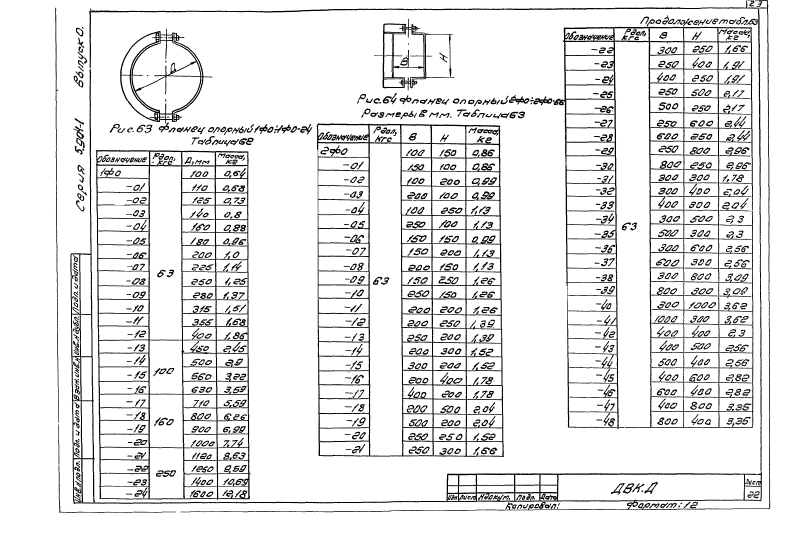 23
Серия 5.904-1 Выпуск 0.
Д
Рис. 63 Фланец опорный 1ф0÷1ф0-24
Таблица 62
Обозначение Рдоп, кгс Д, мм Масса, кг
1ф0 63 100 0,64
-01 110 0,68
-02 125 0,73
-03 140 0,8
-04 160 0,88
-05 180 0,96
-06 200 1,0
-07 225 1,14
-08 250 1,25
-09 280 1,37
-10 315 1,51
-11 355 1,68
-12 400 1,86
-13 100 450 2,45
-14 500 2,9
-15 560 3,22
-16 630 3,59
-17 160 710 5,59
-18 800 6,26
-19 900 6,99
-20 1000 7,74
-21 250 1120 8,63
-22 1250 9,59
-23 1400 10,69
-24 1600 12,18
В
Н
Рис. 64 Фланец опорный 2ф0÷2ф0-
Размеры в мм. Таблица 63
Обозначение Рдоп, кгс В Н Масса, кг
2ф0 63 100 150 0,86
-01 150 100 0,86
-02 100 200 0,99
-03 200 100 0,99
-04 100 250 1,13
-05 250 100 1,13
-06 150 150 0,99
-07 150 200 1,13
-08 200 150 1,13
-09 150 250 1,26
-10 250 150 1,26
-11 200 200 1,26
-12 200 250 1,39
-13 250 200 1,39
-14 200 300 1,52
-15 300 200 1,52
-16 200 400 1,78
-17 400 200 1,78
-18 200 500 2,04
-19 500 200 2,04
-20 250 250 1,52
-21 250 300 1,66
Продолжение табл. 63
Обозначение Рдоп, кгс В Н Масса, кг
-22 63 300 250 1,66
-23 250 400 1,91
-24 400 250 1,91
-25 250 500 2,17
-26 500 250 2,17
-27 250 600 2,44
-28 600 250 2,44
-29 250 800 2,96
-30 800 250 2,96
-31 300 300 1,78
-32 300 400 2,04
-33 400 300 2,04
-34 300 500 2,3
-35 500 300 2,3
-36 300 600 2,56
-37 600 300 2,56
-38 300 800 3,09
-39 800 300 3,09
-40 300 1000 3,62
-41 1000 300 3,62
-42 400 400 2,3
-43 400 500 2,56
-44 500 400 2,56
-45 400 600 2,82
-46 600 400 2,82
-47 400 800 3,35
-48 800 400 3,35
Инв.№подл. Подп. и дата Взам.инв.№ Инв.№дубл. Подп. и дата
Изм Лист №докум. Подп. Дата
ДВК.Д
Лист
22
Копировал:
Формат: 12